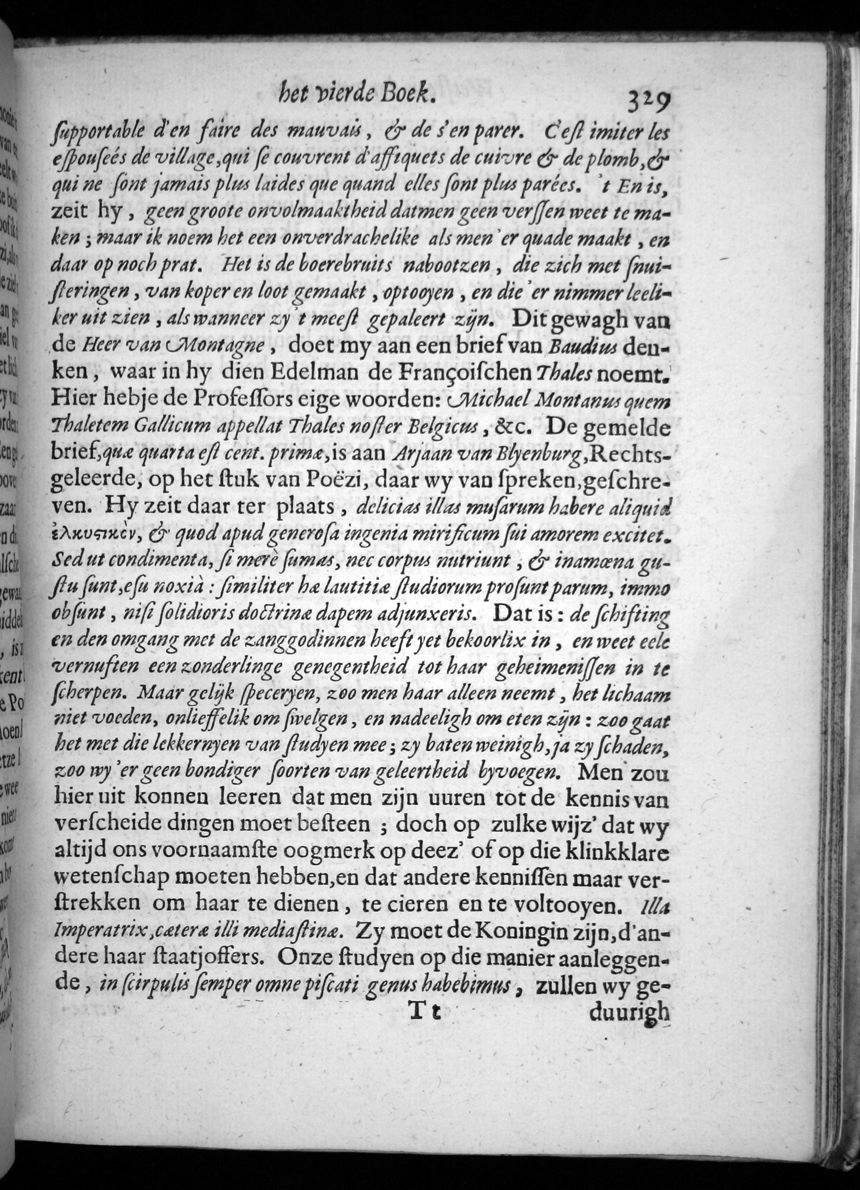 het vierde Boek. 329
ſupportable d'en faire des mauvais, & de s'en parer. C'eſt imiter les
eſpouſeés de village,qui ſe couvrent d'affiquets de cuivre & de plomb,&
qui ne ſont jamais plus laides que quand elles ſont plus parées. 't En is,
zeit hy, geen groote onvolmaaktheid datmen geen verſſen weet te ma-
ken; maar ik noem het een onverdrachelike als men 'er quade maakt, en
daar op noch prat. Het is de boerebruits nabootzen, die zich met ſnui-
ſteringen, van koper en loot gemaakt, optooyen, en die 'er nimmer leeli-
ker uit zien, als wanneer zy 't meeſt gepaleert zijn. Dit gewagh van
de Heer van Montagne, doet my aan een brief van Baudius den-
ken, waar in hy dien Edelman de Françoiſchen Thales noemt.
Hier hebje de Profeſſors eige woorden: Michael Montanus quem
Thaletem Gallicum appellat Thales noſter Belgicus, &c. De gemelde
brief,quæ quarta eſt cent. primæ,is aan Arjaan van Blyenburg,Rechts-
geleerde, op het ſtuk van Poëzi, daar wy van ſpreken,geſchre-
ven. Hy zeit daar ter plaats, delicias illas muſarum habere aliquid
ἑλκυϛικὸν, & quod apud generoſa ingenia mirificum ſui amorem excitet.
Sed ut condimenta, ſi merè ſumas, nec corpus nutriunt, & inamœna gu-
ſtu ſunt,eſu noxià: ſimiliter hæ lautitiæ ſtudiorum proſunt parum, immo
obſunt, niſi ſolidioris doctrinæ dapem adjunxeris. Dat is: de ſchifting
en den omgang met de zanggodinnen heeft yet bekoorlix in, en weet eele
vernuften een zonderlinge genegentheid tot haar geheimeniſſen in te
ſcherpen. Maar gelijk ſpeceryen, zoo men haar alleen neemt, het lichaam
niet voeden, onlieffelik om ſwelgen, en nadeeligh om eten zijn: zoo gaat
het met die lekkernyen van ſtudyen mee; zy baten weinigh,ja zy ſchaden,
zoo wy 'er geen bondiger ſoorten van geleertheid byvoegen. Men zou
hier uit konnen leeren dat men zijn uuren tot de kennis van
verſcheide dingen moet beſteen; doch op zulke wijz' dat wy
altijd ons voornaamſte oogmerk op deez' of op die klinkklare
wetenſchap moeten hebben,en dat andere kenniſſen maar ver-
ſtrekken om haar te dienen, te cieren en te voltooyen. Illa
Imperatrix,cæteræ illi mediaſtinæ. Zy moet de Koningin zijn,d'an-
dere haar ſtaatjoffers. Onze ſtudyen op die manier aanleggen-
de, in ſcirpulis ſemper omne piſcati genus habebimus, zullen wy ge-
T t duurigh